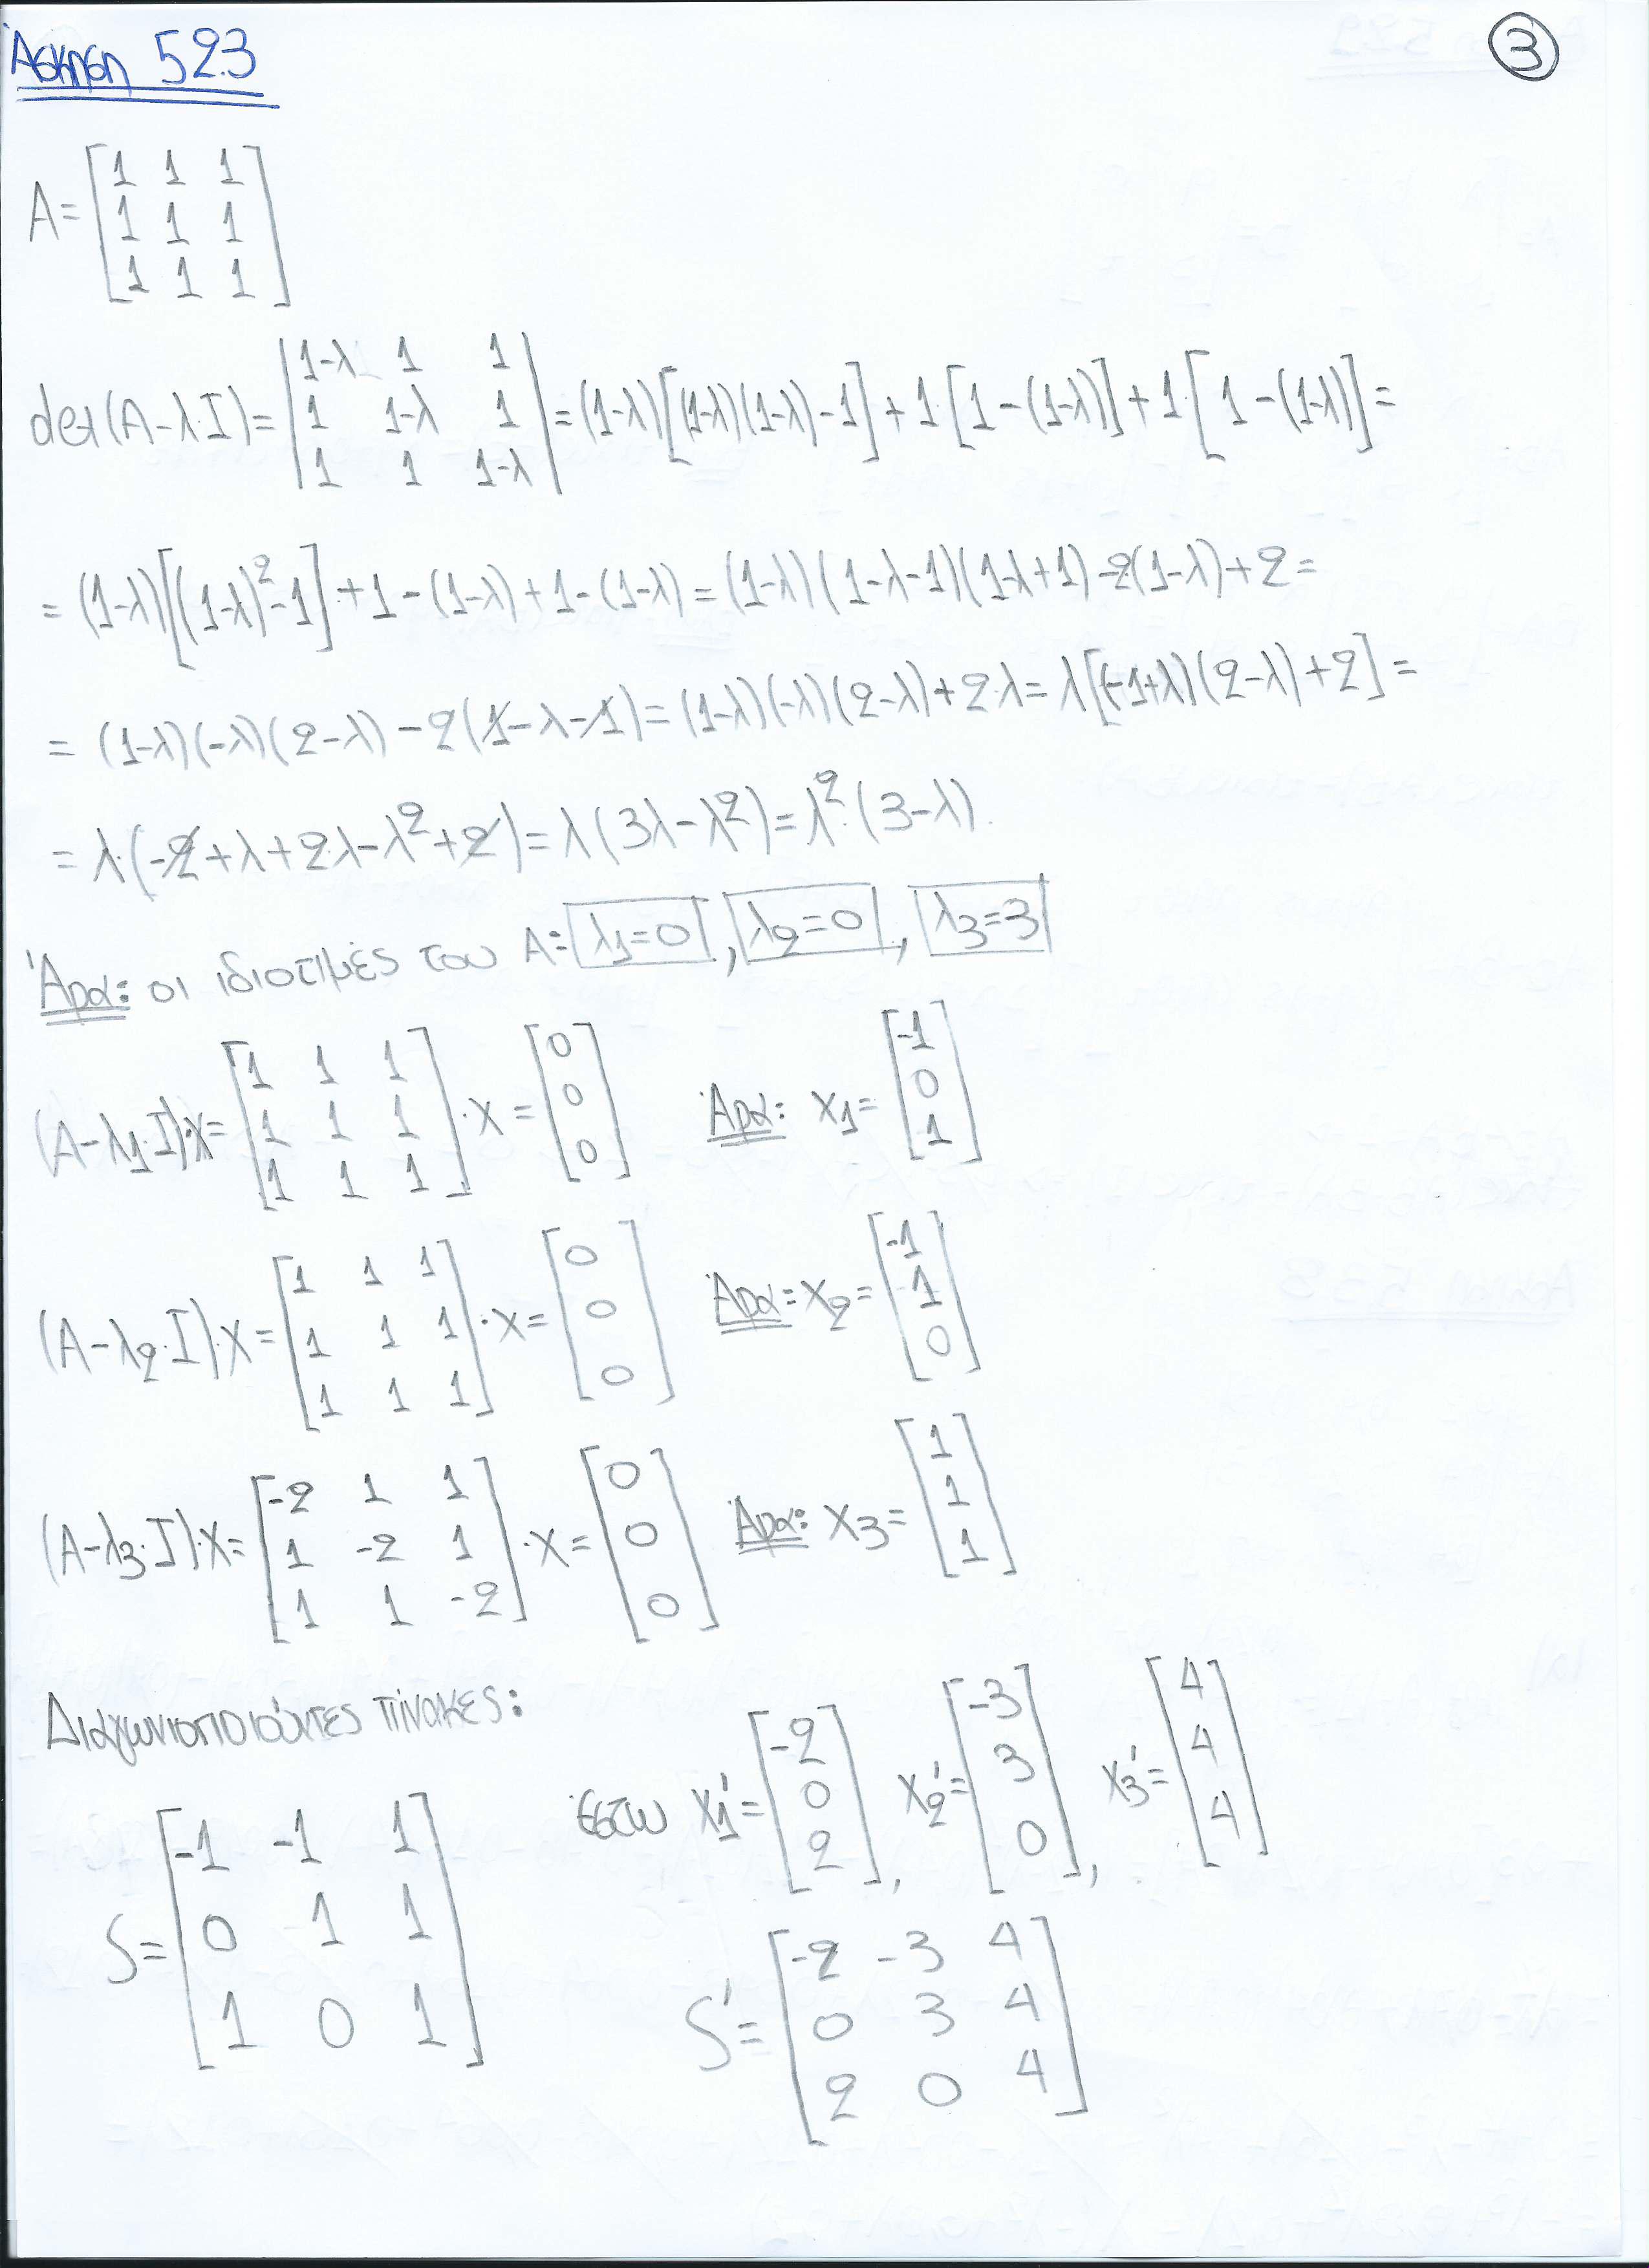 Άσκηση 5.2.3
3
A = [1 1 1; 1 1 1; 1 1 1]
det(A-λ·I) = |1-λ 1 1; 1 1-λ 1; 1 1 1-λ| = (1-λ)[(1-λ)(1-λ)-1] + 1·[1-(1-λ)] + 1·[1-(1-λ)] =
= (1-λ)[(1-λ)²-1] + 1-(1-λ) + 1-(1-λ) = (1-λ)(1-λ-1)(1-λ+1) -2(1-λ)+2 =
= (1-λ)(-λ)(2-λ) - 2(1-λ-1) = (1-λ)(-λ)(2-λ)+2·λ = λ[(-1+λ)(2-λ)+2] =
= λ·(-2+λ+2λ-λ²+2) = λ(3λ-λ²) = λ²·(3-λ).
Άρα: οι ιδιοτιμές του A: λ1=0, λ2=0, λ3=3
(A-λ1·I)·x = [1 1 1; 1 1 1; 1 1 1]·x = [0; 0; 0] Άρα: x1 = [-1; 0; 1]
(A-λ2·I)·x = [1 1 1; 1 1 1; 1 1 1]·x = [0; 0; 0] Άρα: x2 = [-1; 1; 0]
(A-λ3·I)·x = [-2 1 1; 1 -2 1; 1 1 -2]·x = [0; 0; 0] Άρα: x3 = [1; 1; 1]
Διαγωνιοποιούντες πίνακες:
S = [-1 -1 1; 0 1 1; 1 0 1]
έστω x1' = [-2; 0; 2], x2' = [-3; 3; 0], x3' = [4; 4; 4]
S' = [-2 -3 4; 0 3 4; 2 0 4]